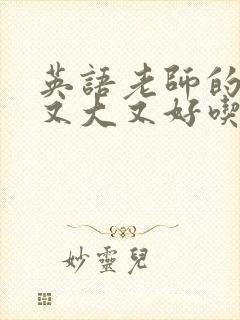 英語老師的
又大又好喫
妙靈兒